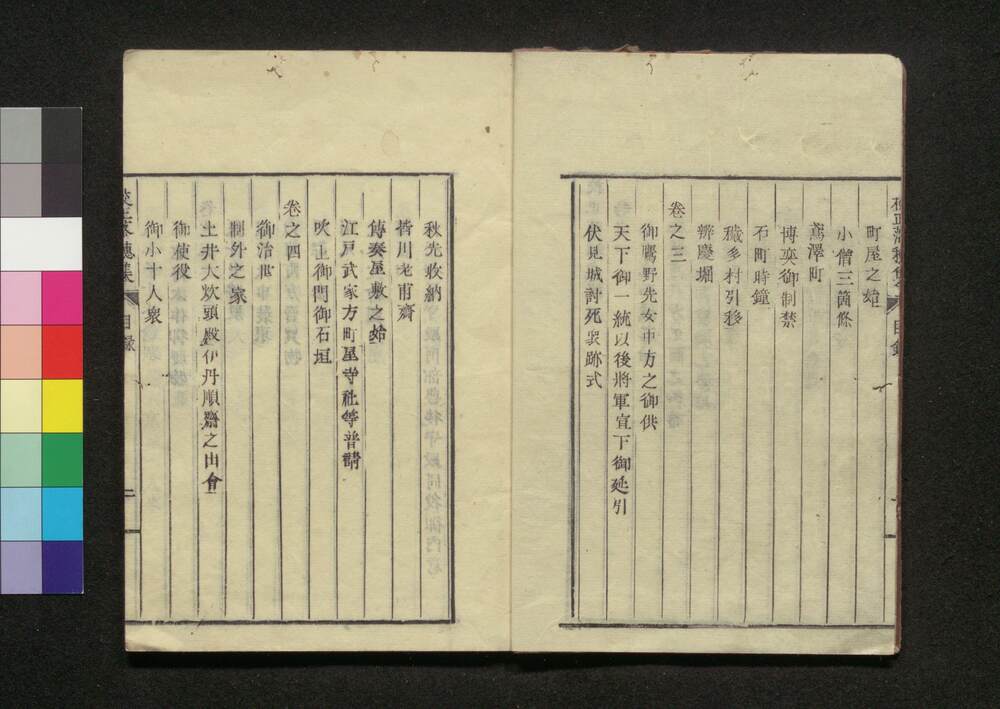 町屋之始
小僧三箇條
鳶澤町
博奕御制禁
石町時鐘
穢多村引移
辨慶堀
卷之三
御鷹野先女中方之御供
天下御一統以後將軍宣下御延引
伏見城討死衆跡式
秋先收納
皆川老甫齋
傳奏屋敷之始
江戸武家方町屋寺社等普請
吹上御門御石垣
卷之四
御治世
制外之家
土井大炊頭殿伊丹順齋之出會
御使役
御小十人衆
目錄
二